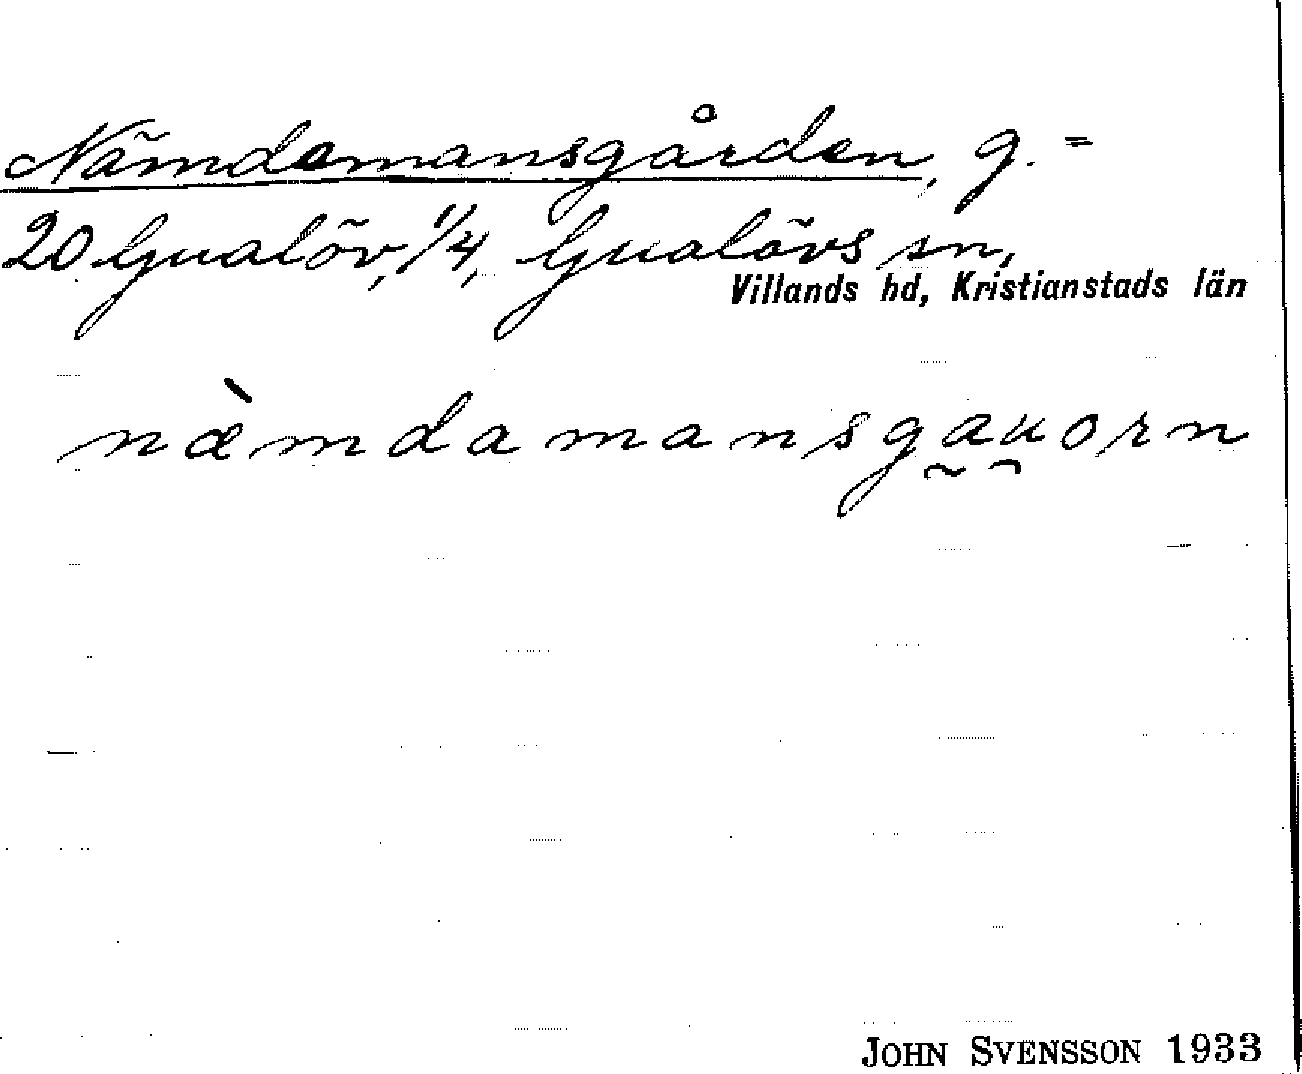 Nämdemansgården, g. =
20 Gualöv, 1/4, Gualövs sn,
Villands hd, Kristianstads län
næ̀mdamansga̰u̯orn
JOHN SVENSSON 1933